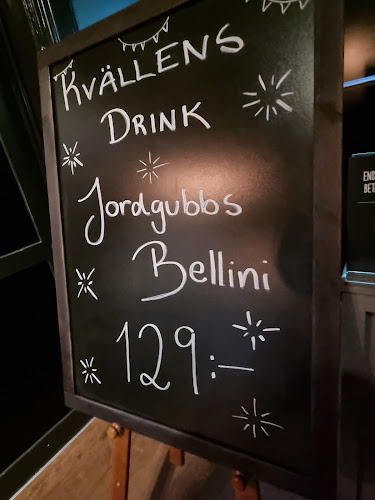 KVÄLLENS
DRINK
Jordgubbs
Bellini
129:-
END
BET